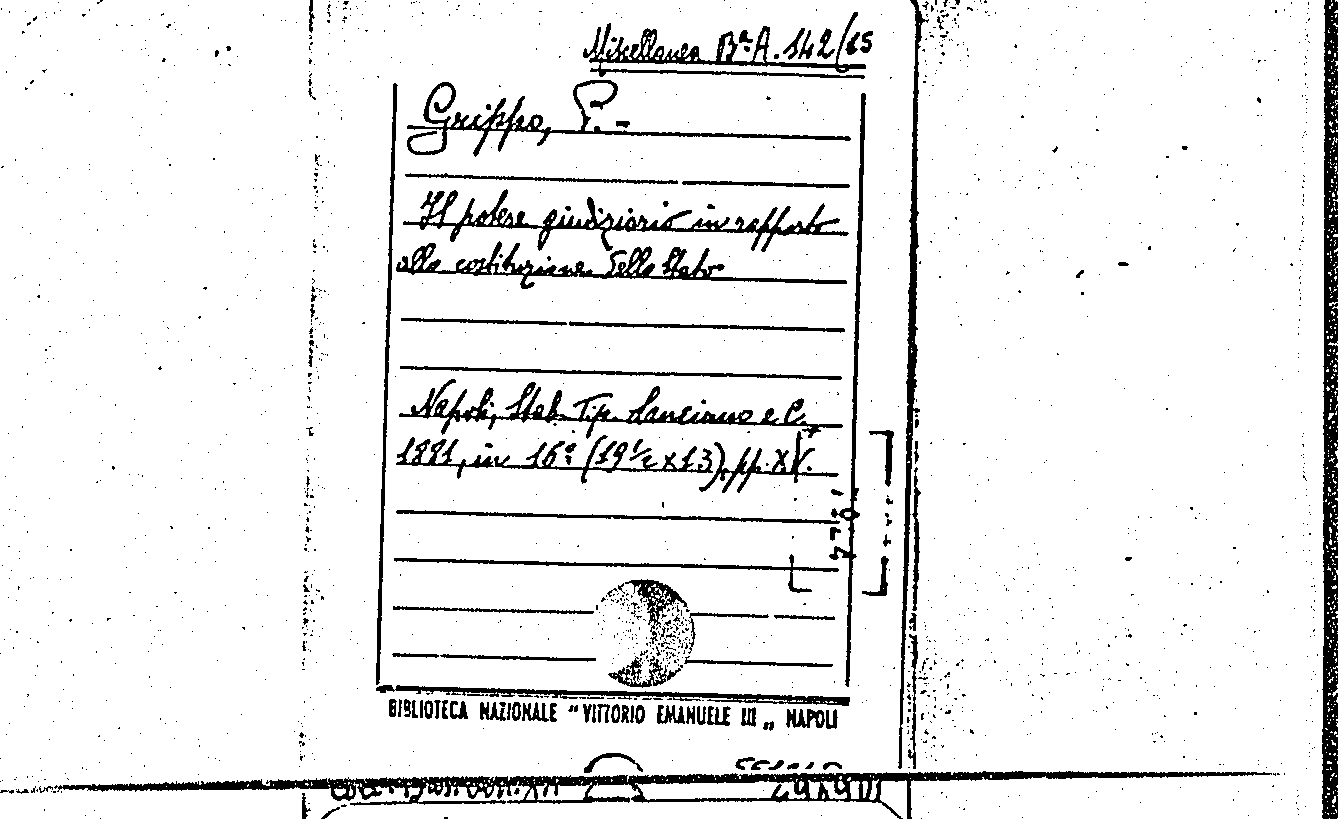 Miscellanea Bª A. 142/65
Grippo, P.-
Il potere giudiziario in rapporto
alla costituzione dello Stato
Napoli, Stab. Tip. Lanciano e C.
1881, in 16º (19½x13), pp. XV.
BIBLIOTECA NAZIONALE "VITTORIO EMANUELE III" NAPOLI